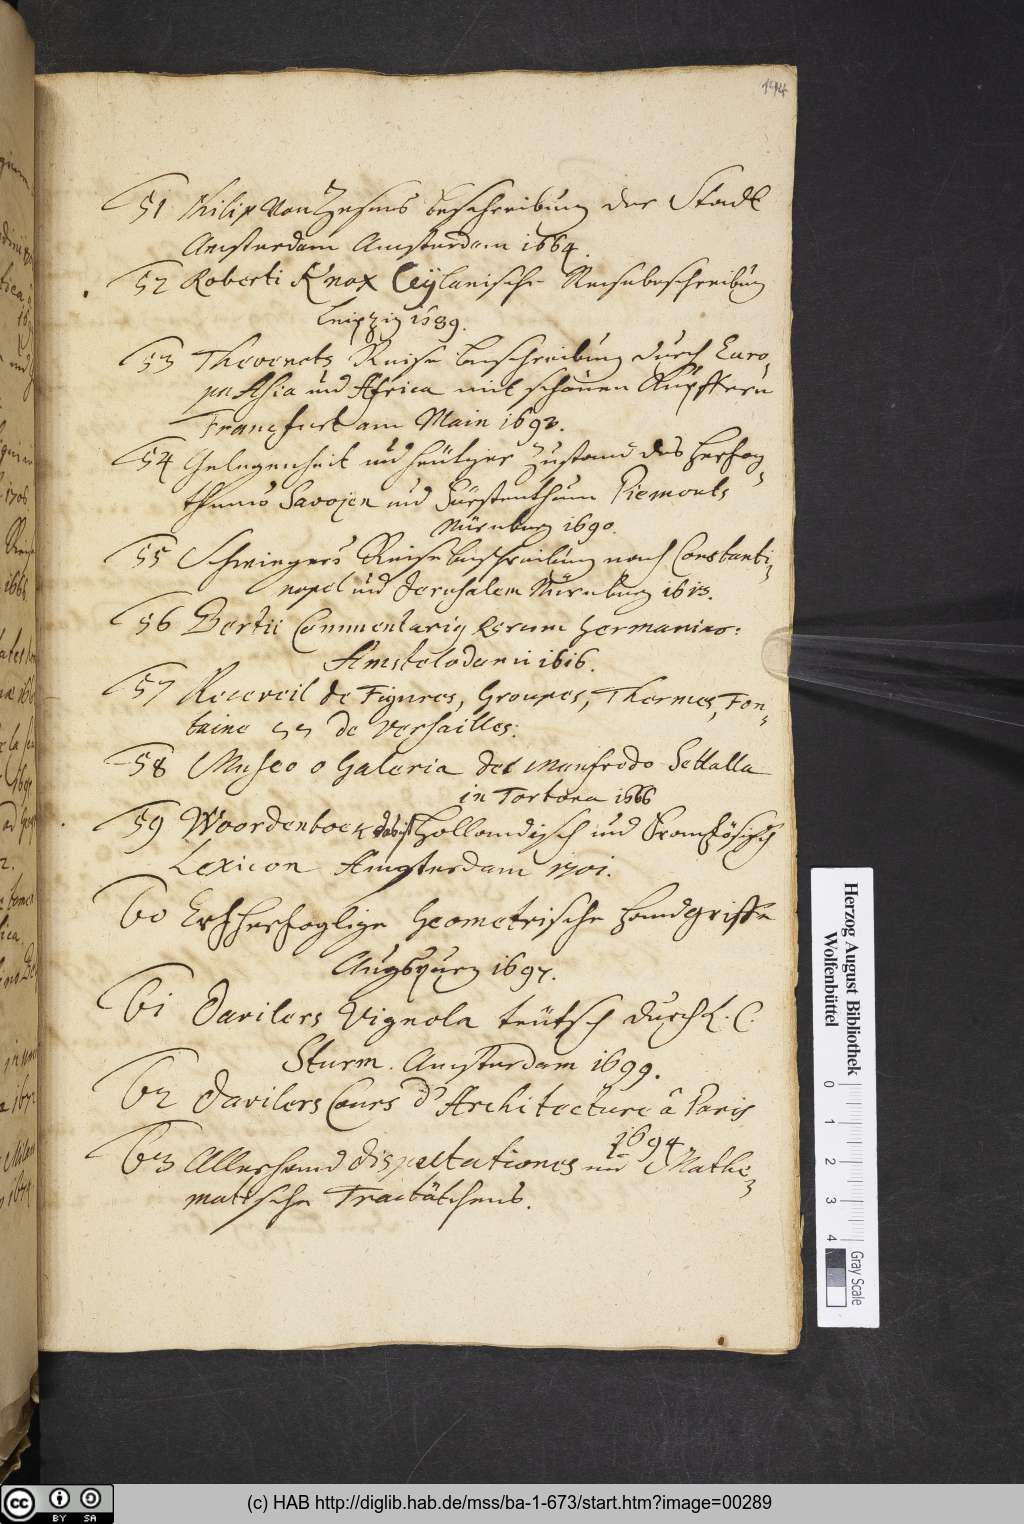 144
51 Philip von Zesens beschreibung der Stadt
Amsterdam Amsterdam 1664.
52 Roberti Knox Ceylanische Reisebeschreibung
Leipzig 1689.
53 Thevenots Reise beschreibung durch Euro,
pa Asia und Africa mit schönen Kupffern
Francfurt am Main 1693.
54 Gelegenheit und heutiger Zustand des Herzog,
thums Savojen und Fürstenthum Piemonts
Nürnberg 1690.
55 Schweigers Reise beschreibung nach Constanti,
nopel und Jerusalem Nürnberg 1613.
56 Bertii Commentariq Rerum Germanicar:
Amstelodami 1616.
57 Receveil de Figures, Groupes, Thermes, Fon,
taine de Versailles.
58 Museo o Galeria del Manfredo Settalla
in Tortona 1666
59 Woordenboek das ist Holländisch und Französisch
Lexicon Amsterdam 1701.
60 Ertzhertzoglige Geometrische Handgriffe
Augspurg 1697.
61 Davilers Vignola teütsch durch L. C.
Sturm. Amsterdam 1699.
62 Davilers Cours d'Architecture â Paris
1694
63 Allerhand Disputationes und Mathe,
matische Tractätchens.
Herzog August Bibliothek
Wolfenbüttel
0 1 2 3 4
Gray Scale
(c) HAB http://diglib.hab.de/mss/ba-1-673/start.htm?image=00289
cc BY SA